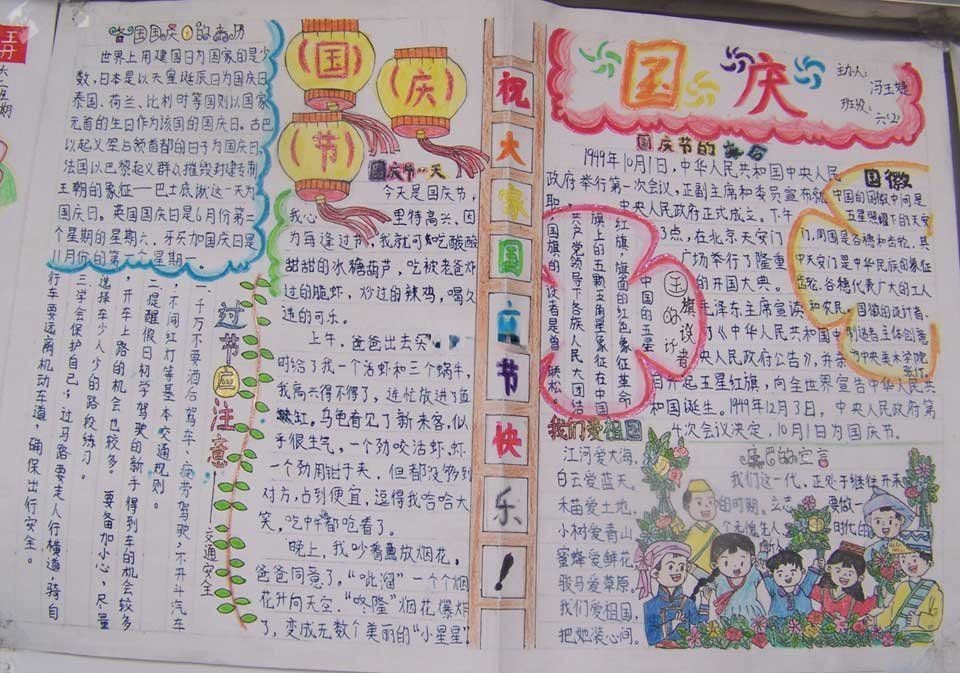 各国国庆日的来历
世界上用建国日为国家的是少
数,日本是以天皇诞辰日为国庆日
泰国、荷兰、比利时等国则以国家
元首的生日作为该国的国庆日。古巴
以起义军占领首都的日子为国庆日
法国以巴黎起义群众摧毁封建制
王朝的象征——巴士底狱这一天为
国庆日。英国国庆日是6月份第二
个星期的星期六、牙买加国庆日是
11月份的第一个星期一。
过节应注意
交通安全
一千万不要酒后驾车、疲劳驾驶,不开斗汽车
,不闯红灯等基本交通规则
二提醒假日初学驾驶的新手得到车的机会较多
,开车上路的机会也校多。要备加小心,尽量
选择车少人少的路段练习。
三学会保护自己,过马路要走人行横道,骑自
行车要远离机动车道,确保出行安全。
国
庆
节
国庆节一天
今天是国庆节,
我心里特高兴、因
为每逢过节,我就可吃酸酸
甜甜的冰糖葫芦,吃被老爸炸
过的脆虾,炒过的辣鸡,喝久
违的可乐。
上午,爸爸出去买
时给了我一个活虾和三个蜗牛,
我高兴得不得了,连忙放进了鱼
缸。乌龟看见了新来客,似
乎很生气,一个劲咬活虾,虾
一个劲用钳子夹,但都没够到
对方,占到便宜,逗得我哈哈大
笑,吃中午都呛着了。
晚上,我吵着放烟花,
爸爸同意了。一个个烟
花升向天空,“咚隆”烟花爆炸
了,变成无数个美丽的“小星星”
祝大家国庆节快乐!
国庆
主办人:
冯玉婕
班级:
六(2)
国庆节的
1949年10月1日,中华人民共和国中央人民
政府举行第一次会议,正副主席和委员宣布就
职,中央人民政府正式成立。下午
3点,在北京天安门
广场举行了隆重
的开国大典。
毛泽东主席宣读
了《中华人民共和国中
央人民政府公告》,并亲
自升起五星红旗,向全世界宣告中华人民共
和国诞生。1949年12月3日,中央人民政府第
4次会议决定,10月1日为国庆节。
旗议者
中国的五星
红旗,旗面的红色象征革命
旗上的五颗五角星象征在中国
共产党领导下各族人民大团结
国旗的设计者是曾联松。
国徽
中国的国徽中间是
五星照耀下的天安
门,周围是谷穗和齿轮,其
中天安门是中华民族的象征
齿轮、谷穗代表广大的工人
和农民。国徽的设计者、
创造者主体创意
为中央美术学院
张仃。
我们爱祖国
江河爱大海,
白云爱蓝天。
禾苗爱土地,
小树爱青山
蜜蜂爱鲜花
骏马爱草原,
我们爱祖国,
把她装心间。
的宣言
我们这一代,正处于继往开来
的时期。立志 要做
个 人 时代的